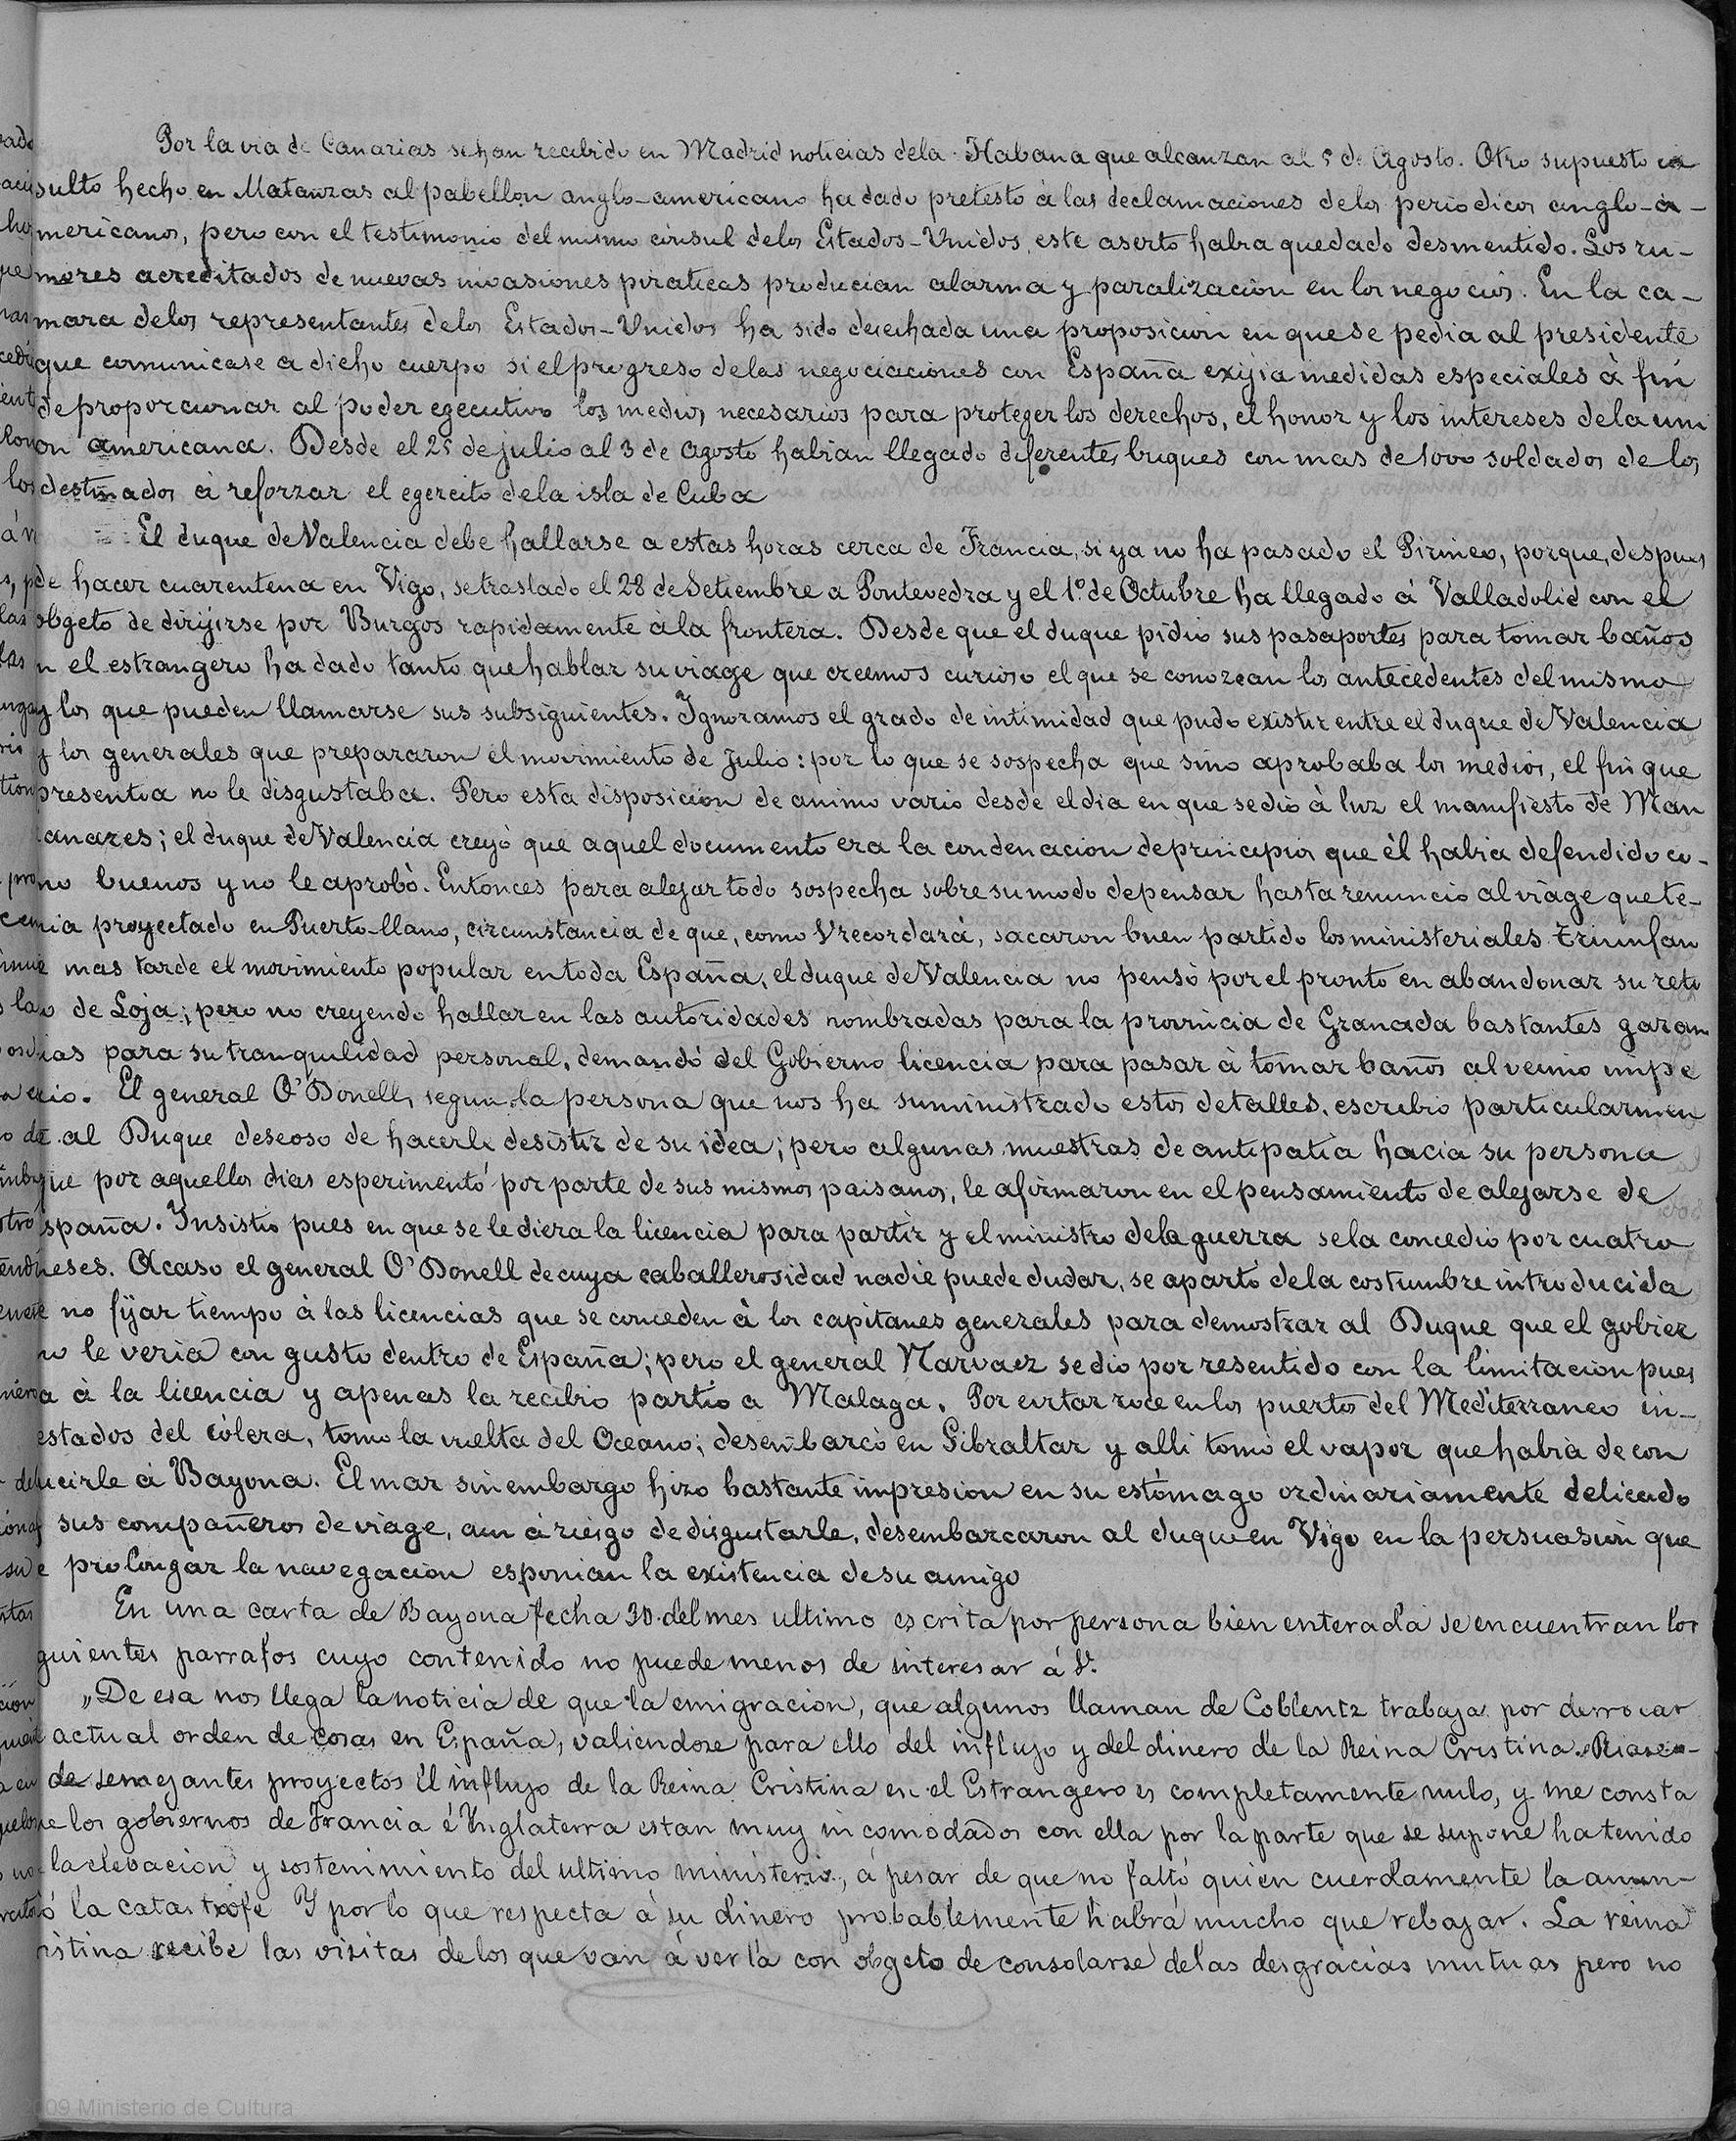 Por la via de Canarias se han recibido en Madrid noticias dela Habana que alcanzan al 5 de Agosto. Otro supuesto in
sulto hecho en Matanzas al pabellon anglo-americano ha dado pretesto à las declamaciones delos periodicos anglo-a-
mericanos, pero con el testimonio del mismo cónsul delos Estados-Unidos, este aserto habia quedado desmentido. Los ru-
mores acreditados de nuevas invasiones piraticas producian alarma y paralizacion en los negocios. En la ca-
mara delos representantes delos Estados-Unidos ha sido desechada una proposicion en que se pedia al presidente
que comunicase a dicho cuerpo si el progreso delas negociaciones con España exijia medidas especiales à fin
de proporcionar al poder egecutivo los medios necesarios para proteger los derechos, el honor y los intereses dela uni
on americana. Desde el 25 de julio al 3 de Agosto habian llegado diferentes buques con mas de 1000 soldados de los
destinados à reforzar el egercito dela isla de Cuba
El duque de Valencia debe hallarse a estas horas cerca de Francia, si ya no ha pasado el Pirineo, porque, despues
de hacer cuarentena en Vigo, se traslado el 28 de Setiembre a Pontevedra y el 1º. de Octubre ha llegado à Valladolid con el
objeto de dirijirse por Burgos rapidamente à la frontera. Desde que el duque pidio sus pasaportes para tomar baños
n el estrangero ha dado tanto que hablar su viage que creemos curioso el que se conozcan los antecedentes del mismo
y los que pueden llamarse sus subsiguientes. Ignoramos el grado de intimidad que pudo existir entre el duque de Valencia
y los generales que prepararon el movimiento de Julio: por lo que se sospecha que sino aprobaba los medios, el fin que
presentia no le disgustaba. Pero esta disposicion de animo varió desde el dia en que se dió à luz el manifiesto de Man
anares; el duque de Valencia creyó que aquel documento era la condenacion de principios que èl habia defendido co-
mo buenos y no le aprobó. Entonces para alejar todo sospecha sobre su modo de pensar hasta renuncio al viage que te-
nia proyectado en Puerto-llano, circunstancia de que, como V recordará, sacaron buen partido los ministeriales. Triunfan
mas tarde el movimiento popular en toda España, el duque de Valencia no pensó por el pronto en abandonar su reti
o de Loja; pero no creyendo hallar en las autoridades nombradas para la provincia de Granada bastantes garan
ias para su tranquilidad personal, demandó del Gobierno licencia para pasar à tomar baños al vecino impe
rio. El general O'Donell, segun la persona que nos ha suministrado estos detalles, escribio particularmen
te al Duque deseoso de hacerle desistir de su idea; pero algunas muestras de antipatia hacia su persona
que por aquellos dias esperimentó por parte de sus mismos paisanos, le afirmaron en el pensamiento de alejarse de
spaña. Insistio pues en que se le diera la licencia para partir y el ministro dela guerra sela concedio por cuatro
meses. Acaso el general O'Donell de cuya caballerosidad nadie puede dudar, se apartó dela costumbre introducida
e no fijar tiempo à las licencias que se conceden à los capitanes generales para demostrar al Duque que el gobier
no le veria con gusto dentro de España; pero el general Narvaez se dió por resentido con la limitacion pues
a à la licencia y apenas la recibio partio a Malaga. Por evitar roce en los puertos del Mediterraneo in-
estados del cólera, tomo la vuelta del Oceano; desembarcó en Gibraltar y alli tomó el vapor que habia de con
ucirle à Bayona. El mar sin embargo hizo bastante impresion en su estómago ordinariamente delicado
sus compañeros de viage, aun à riesgo de disgustarle, desembarcaron al duque en Vigo en la persuasion que
e prolongar la navegacion esponian la existencia de su amigo
En una carta de Bayona fecha 30 del mes ultimo escrita por persona bien enterada se encuentran los
guientes parrafos cuyo contenido no puede menos de interesar á V.
„De esa nos llega la noticia de que la emigracion, que algunos llaman de Coblentz trabaja por derrocar
actual orden de cosas en España, valiendose para ello del influjo y del dinero de la Reina Cristina.
de semejantes proyectos El influjo de la Reina Cristina en el Estrangero es completamente nulo, y me consta
e los gobiernos de Francia é Inglaterra estan muy incomodados con ella por la parte que se supone ha tenido
la elevacion y sostenimiento del ultimo ministerio, á pesar de que no faltó quien cuerdamente la anun-
ó la catastrofe Y por lo que respecta á su dinero probablemente habrá mucho que rebajar. La reina
ristina recibe las visitas de los que van á verla con objeto de consolarse de las desgracias mutuas pero no
2009 Ministerio de Cultura